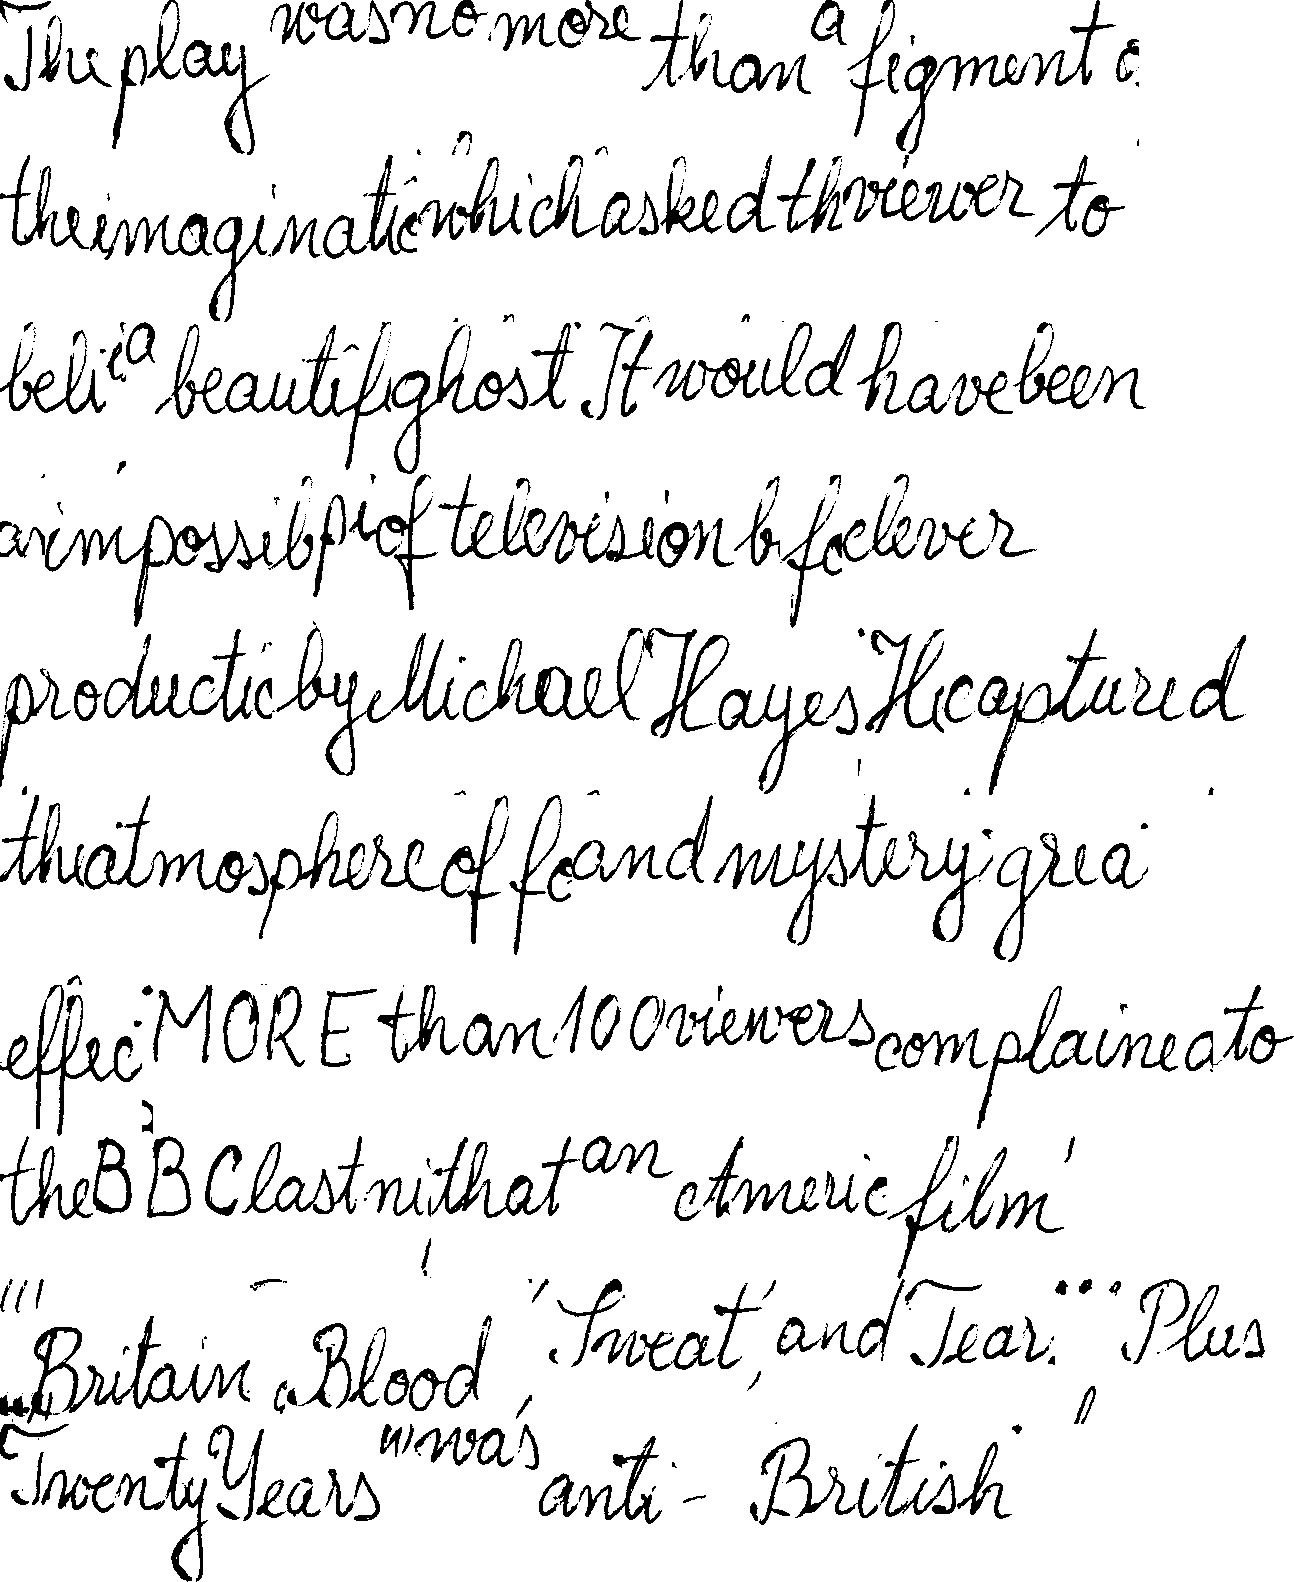 The play was no more than a figment
the imaginatic which asked th viewer to
beli a beautif ghost. It would have been
impossib pi of television b fc clever
productic by Michael Hayes. He captured
the atmosphere of fc and mystery grea
effec MORE than 100 viewers complained to
the BBC last ni that an Americ film
"Britain Blood, Sweat, and Tear... Plus
Twenty Years" was anti - British